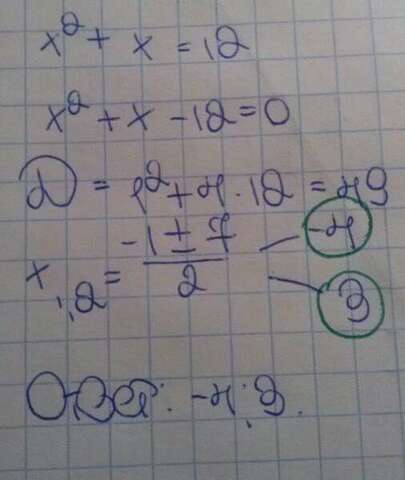 x² + x = 12
x² + x - 12 = 0
D = 1² + 4 · 12 = 49
x₁,₂ = (-1 ± 7) / 2 -4
3
Ответ: -4; 3.